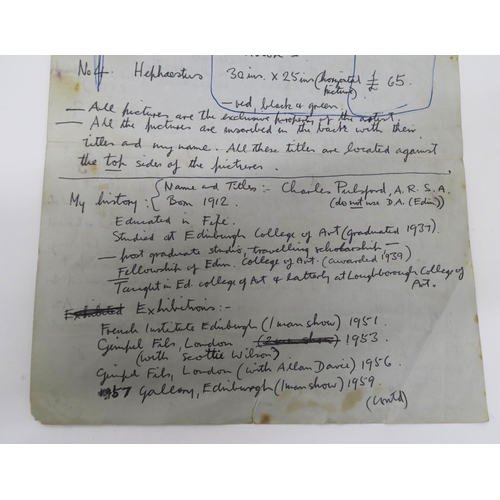 No 4. Hephaestus 30 ins. x 25 ins (horizontal picture) £ 65.
— red, black & green.
— All pictures are the exclusive property of the artist.
— All the pictures are inscribed in the back with their
titles and my name. All these titles are located against
the top sides of the pictures.
My history :- Name and Titles :- Charles Pulsford, A.R.S.A.
(do not use D.A. (Edin))
Born 1912.
Educated in Fife.
Studied at Edinburgh College of Art (graduated 1937.
— post graduate studio, travelling scholarship —
Fellowship of Edin. College of Art. (awarded 1939)
Taught in Ed. college of Art & latterly at Loughborough College of
Art.
Exhibited Exhibitions :-
French Institute Edinburgh (1 man show) 1951.
Gimpel Fils, London (2 man show) 1953.
(with Scottie Wilson)
Gimpel Fils, London (with Allan Davie) 1956.
'57 Gallery, Edinburgh (1 man show) 1959.
(Contd)